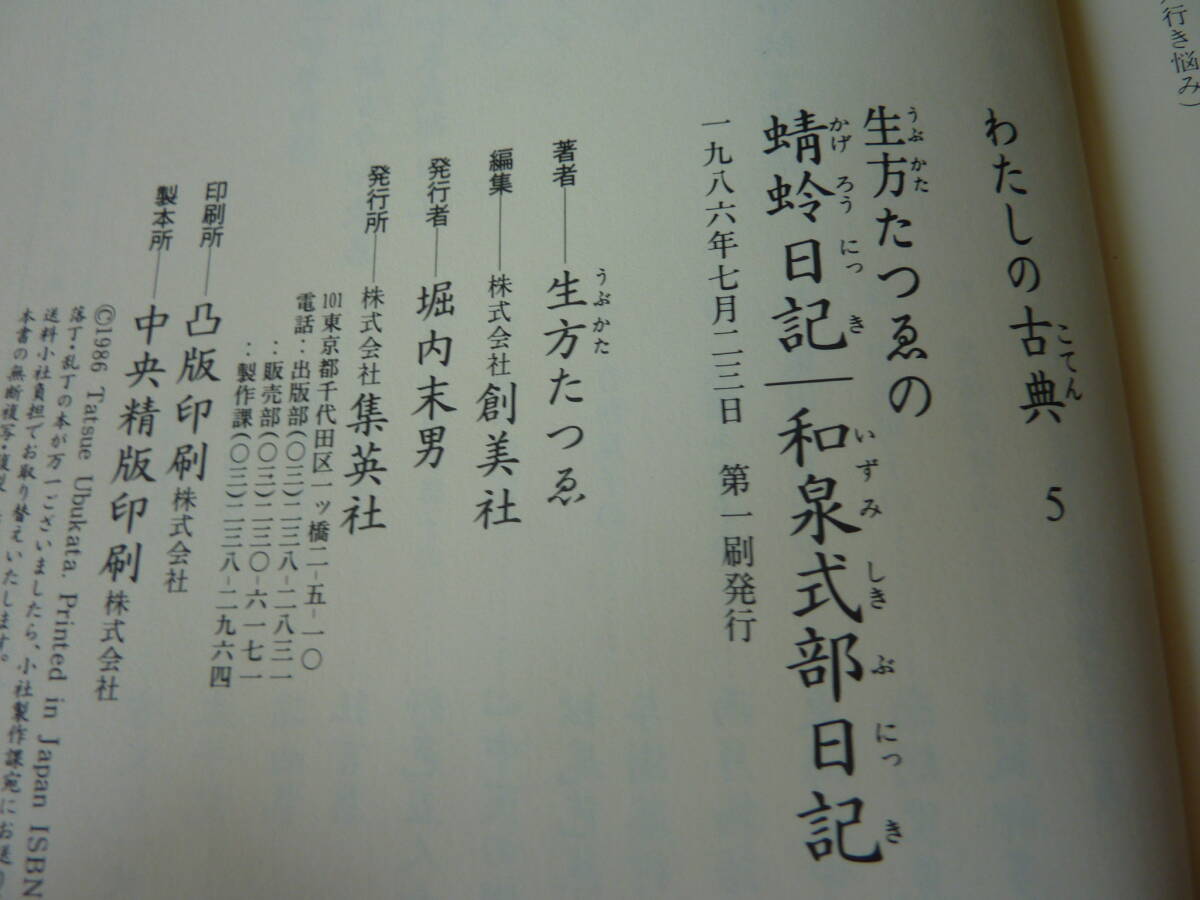 行き悩み）
わたしの古典 5
こてん
生方たつゑの
うぶかた
蜻蛉日記―和泉式部日記
かげろうにっき いずみしきぶにっき
一九八六年七月二三日 第一刷発行
著者――生方たつゑ
うぶかた
編集――株式会社 創美社
発行者――堀内末男
発行所――株式会社 集英社
101東京都千代田区一ッ橋二-五-一〇
電話：出版部(〇三)二三八-二八三一
：販売部(〇三)二三〇-六一七一
：製作課(〇三)二三八-二九六四
印刷所――凸版印刷 株式会社
製本所――中央精版印刷 株式会社
©1986 Tatsue Ubukata. Printed in Japan ISBN
落丁・乱丁の本が万一ございましたら、小社製作課宛にお送り
送料小社負担でお取り替えいたします。
本書の無断複写・複製